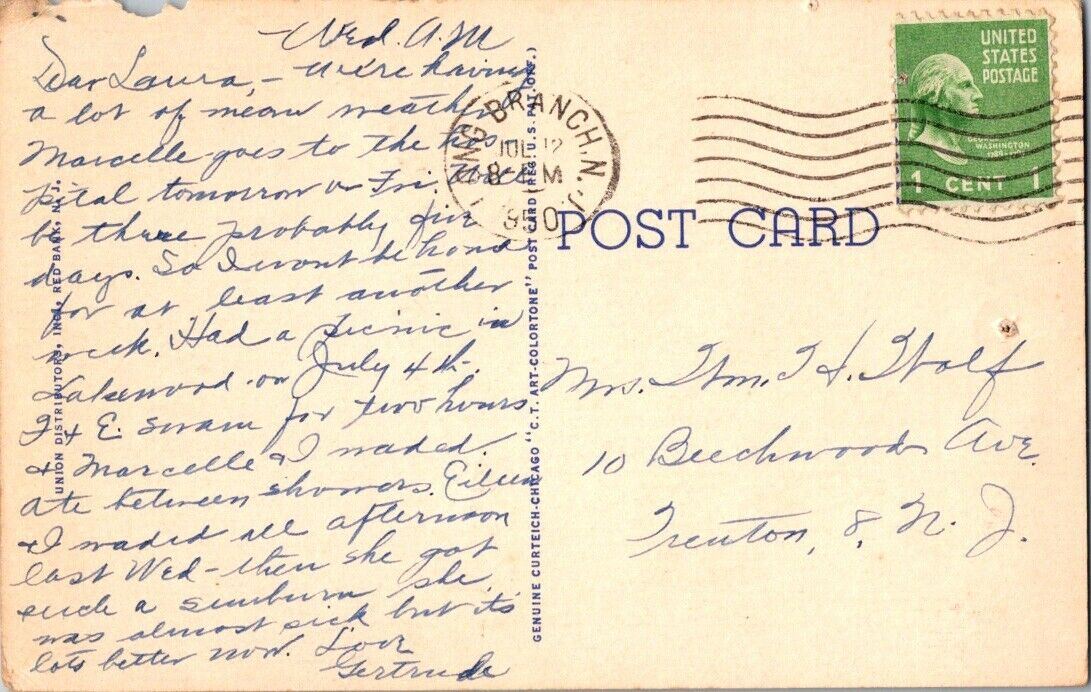 Wed. A.M
Dear Laura, - We're having
a lot of mean weather.
Marcelle goes to the hos-
pital tomorrow or Fri. Will
be there probably five
days. So I wont be home
for at least another
week. Had a picnic in
Lakewood on July 4th.
J + E. swam for two hours
+ Marcelle + I waded.
Ate between showers. Eileen
+ I waded all afternoon
last Wed - then she got
such a sunburn she
was almost sick but its
lots better now. Love
Gertrude
UNION DISTRIBUTORS, INC., RED BANK, N. J.
GENUINE CURTEICH-CHICAGO "C.T. ART-COLORTONE" POST CARD (REG. U.S. PAT. OFF.)
LONG BRANCH, N.J.
JUL 12
8 - M
1950
UNITED
STATES
POSTAGE
WASHINGTON
1 CENT 1
POST CARD
Mrs. Wm. H. Wolf
10 Beechwood Ave
Trenton, 8, N. J.